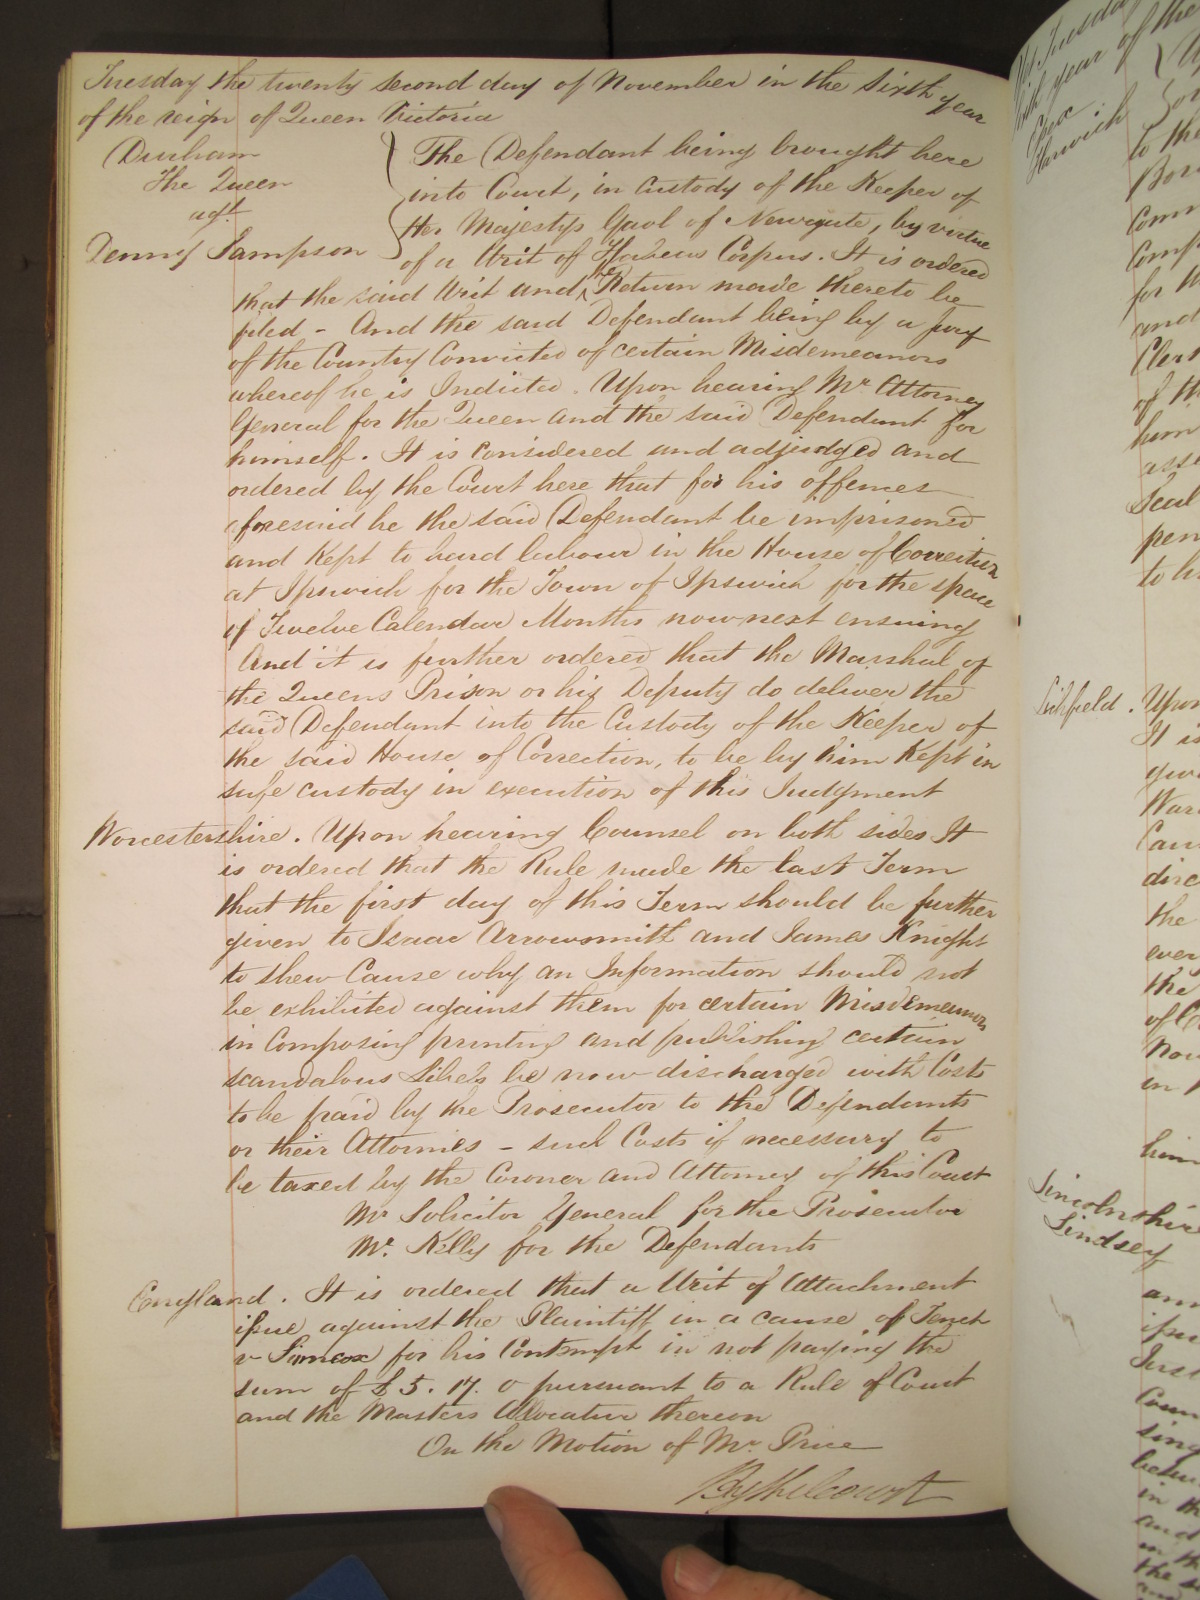 Tuesday the twenty second day of November in the Sixth year
of the reign of Queen Victoria
Durham
The Queen
agt.
Sampson
The Defendant being brought here
into Court, in Custody of the Keeper of
Her Majestys Gaol of Newgate, by virtue
of a Writ of Habeas Corpus. It is ordered
that the said Writ and the Return made thereto be
filed – And the said Defendant being by a jury
of the Country Convicted of certain Misdemeanors
whereof he is Indicted. Upon hearing Mr Attorney
General for the Queen and the said Defendant for
himself. It is considered and adjudged and
ordered by the Court here that for his offences
aforesaid he the said Defendant be imprisoned
and Kept to hard labour in the House of Correction
at Ipswich for the Town of Ipswich for the space
of Twelve Calendar Months now next ensuing
And it is further ordered that the Marshal of
the Queens Prison or his Deputy do deliver the
said Defendant into the Custody of the Keeper of
the said House of Correction, to be by him Kept in
safe custody in execution of this Judgment
Worcestershire. Upon hearing Counsel on both sides It
is ordered that the Rule made the last Term
that the first day of this Term should be further
given to Isaac Arrowsmith and James Knight
to shew Cause why an Information should not
be exhibited against them for certain Misdemeanors
in Composing printing and publishing certain
scandalous Libels be now discharged with Costs
to be paid by the Prosecutor to the Defendants
or their Attornies – such Costs if necessary to
be taxed by the Coroner and Attorney of this Court
Mr Solicitor General for the Prosecutor
Mr. Kelly for the Defendants
England. It is ordered that a Writ of Attachment
issue against the Plaintiff in a cause of Tench
v Simcox for his Contempt in not paying the
sum of £5. 17. 0 pursuant to a Rule of Court
and the Masters Allocatur thereon
On the Motion of Mr. Price
By the Court
year of the
Harwich
to th
Lichfield. Upon
It is
the
in
him
Lincolnshire
Lindsey